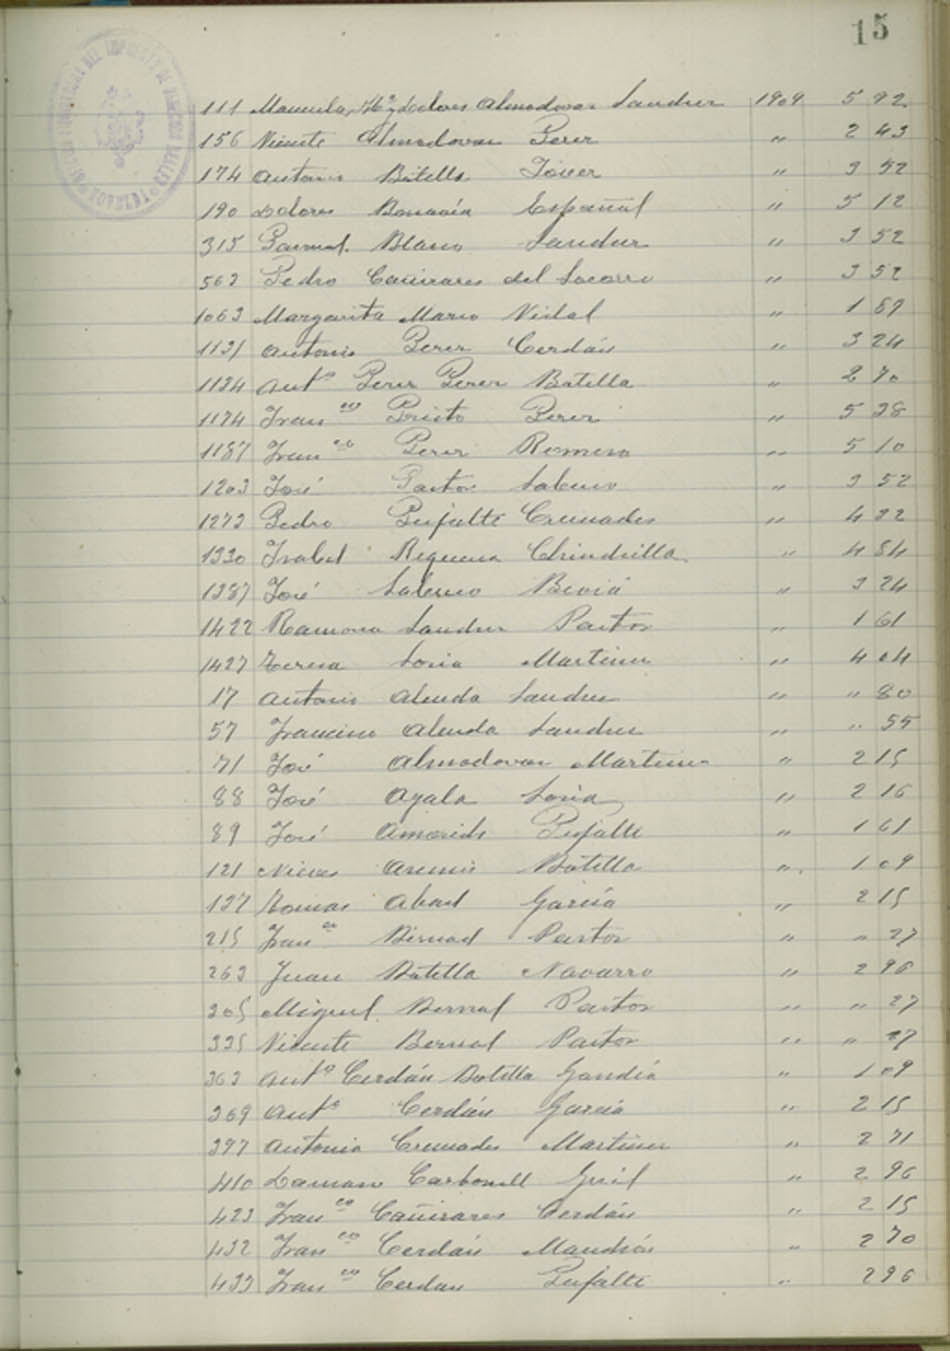 15
111 Manuela, Mª y Dolores Almodovar Sancher 1909 5 92
156 Vicente Almodovar Perer " 2 43
174 Antonio Botella Tover " 3 52
190 Dolores Español " 5 12
315 Pascual Blanco Sancher " 3 52
563 Pedro Cañirares del Socorro " 3 52
1063 Margarita Marco Vidal " 1 67
1131 Antonio Perer Cerdán " 3 24
1134 Antº Perer Perer Botella " 2 70
1174 Franco Prieto Perer " 5 38
1187 Franco Perer Romero " 5 10
1203 José Pastor Sabuco " 3 52
1273 Pedro Pujalte Cremades " 4 32
1330 Isabel Requena Chinchilla " 4 84
1387 José Sabuco Beviá " 3 24
1422 Ramona Sancher Pastor " 1 61
1427 Teresa Soria Martiner " 4 04
17 Antonio Alenda Sancher " " 80
57 Francisco Alenda Sancher " " 55
71 José Almodovar Martiner " 2 15
88 José Ayala Soria " 2 16
89 José Amorós Pujalte " 1 61
121 Nieves Asensi Botella " 1 09
137 Tomas Abad García " 2 15
215 Franco Bernad Pastor " " 27
263 Juan Botella Navarro " 2 96
305 Miguel Bernal Pastor " " 27
335 Vicente Bernal Pastor " " 27
363 Antº Cerdán Botella Gandía " 1 09
369 Antº Cerdán García " 2 15
397 Antonio Cremades Martiner " 2 71
410 Damaso Carbonell Gril " 2 96
423 Franco Cañirares Cerdán " 2 15
432 Franco Cerdán " 2 70
433 Franco Cerdan Pujalte " 2 96